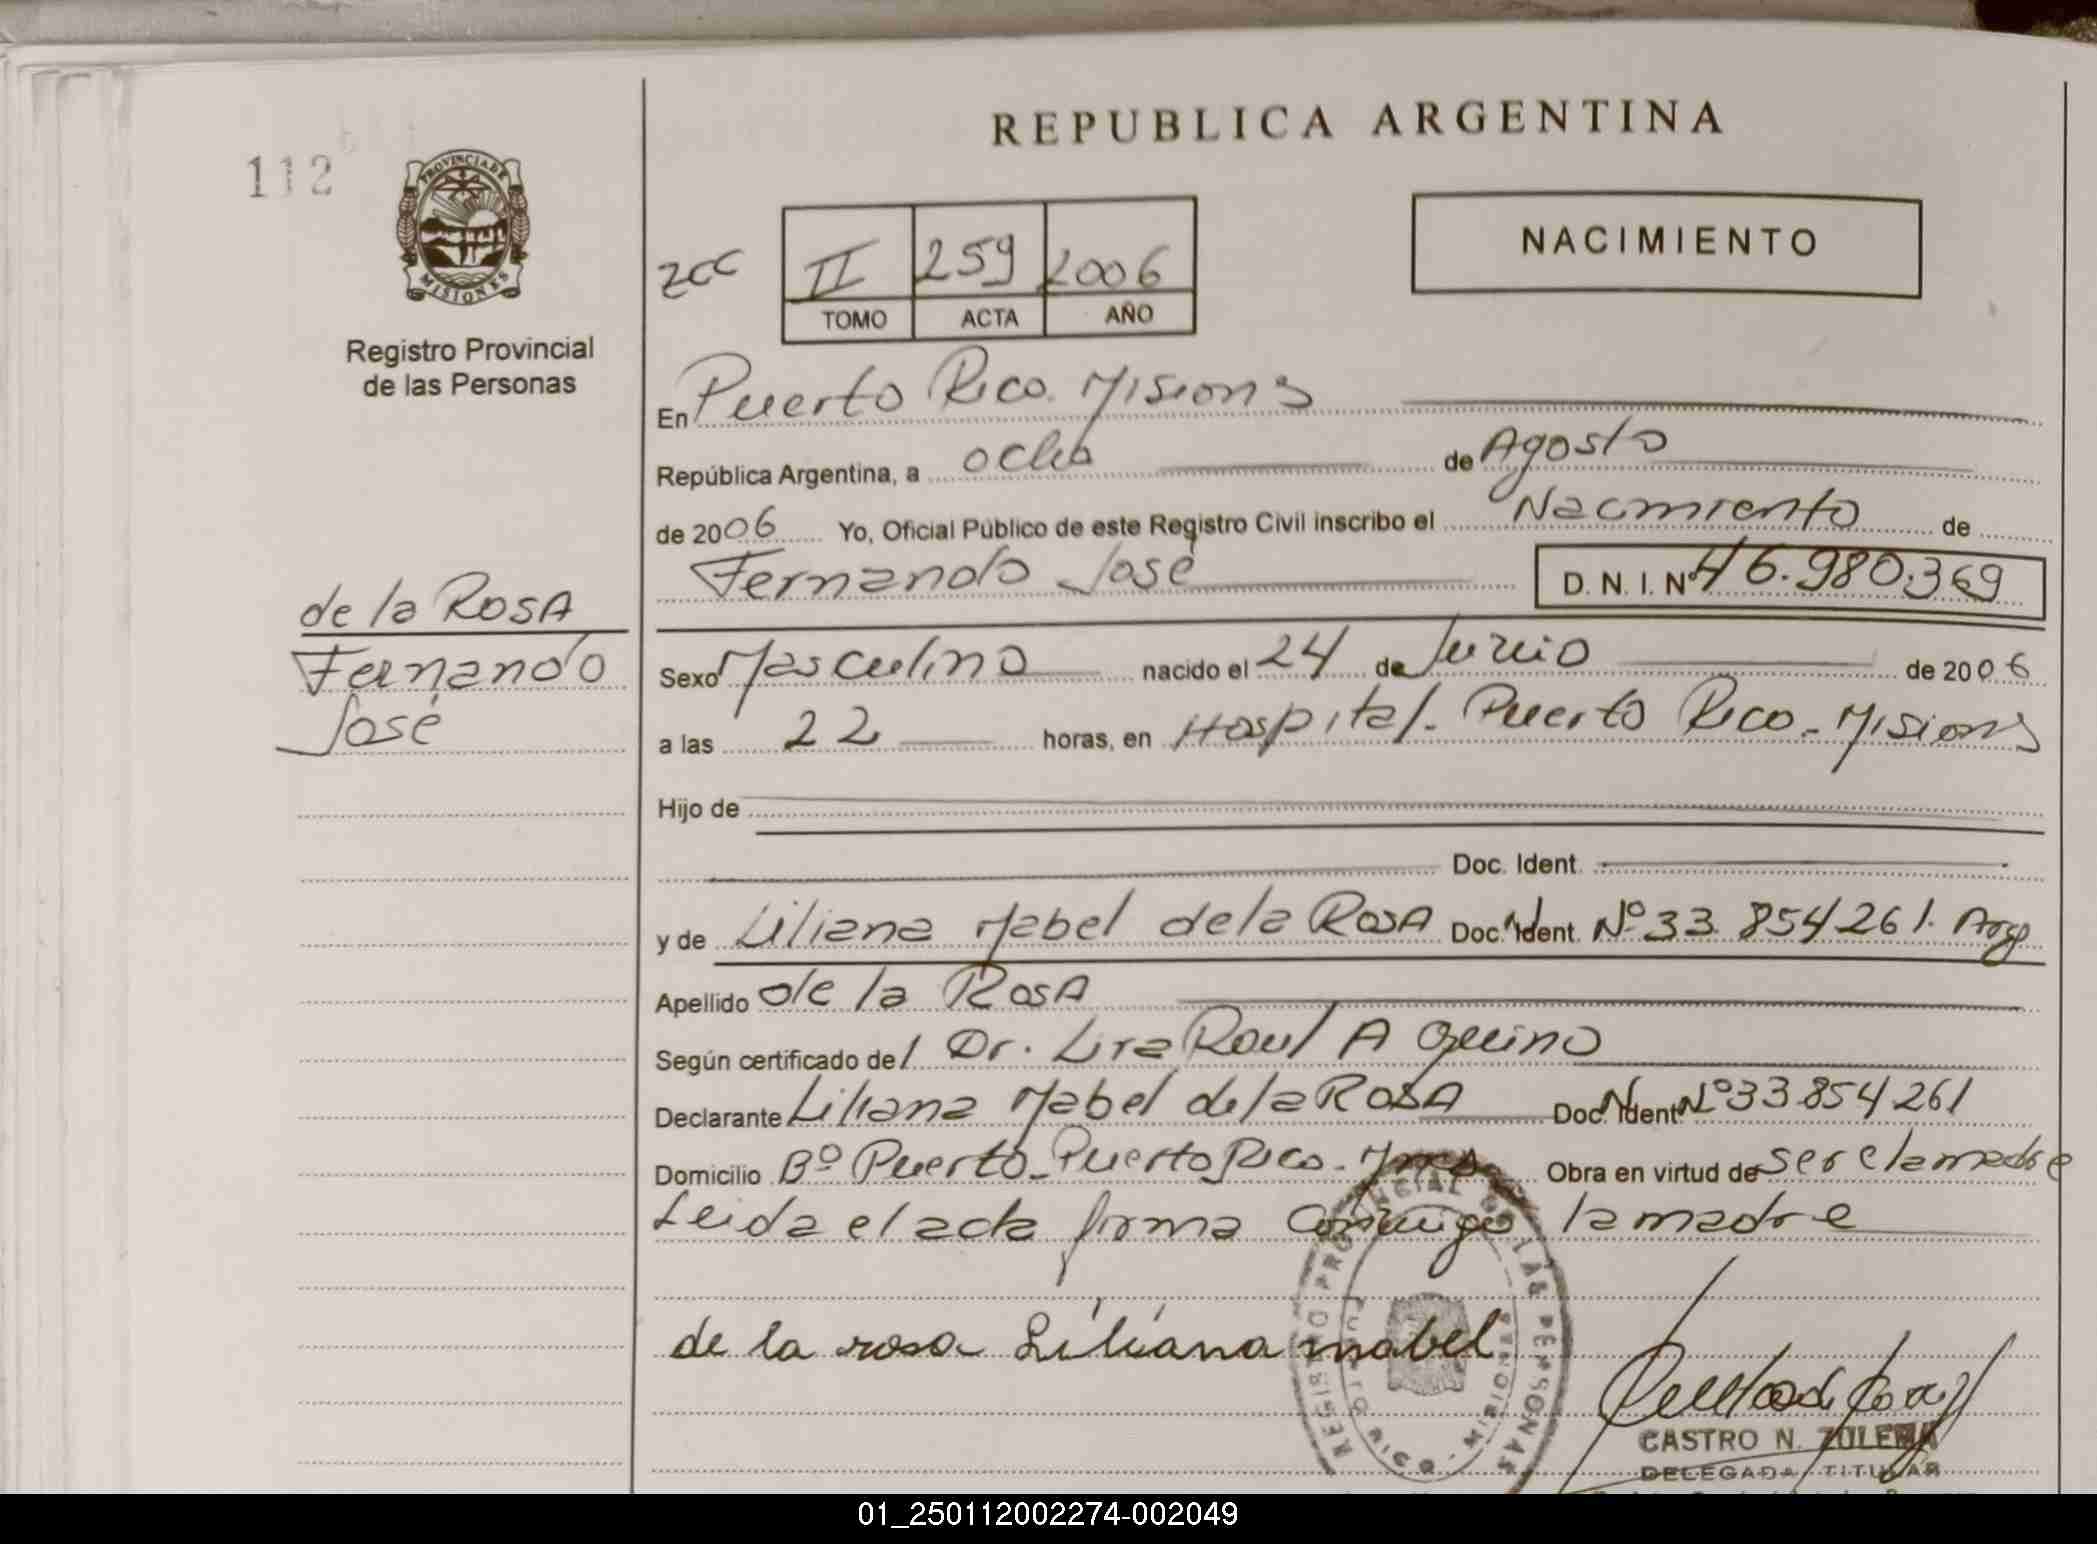 REPUBLICA ARGENTINA
112
PROVINCIA DE
MISIONES
Registro Provincial
de las Personas
II 259 2006
TOMO ACTA AÑO
NACIMIENTO
En Puerto Rico. Misiones
República Argentina, a ocho de Agosto
de 2006 Yo, Oficial Público de este Registro Civil inscribo el Nacimiento de
Fernando José D. N. I. Nº 46.980.369
de la ROSA
Fernando
José
Sexo Masculino nacido el 24 de Junio de 2006
a las 22 horas, en Hospital. Puerto Rico - Misiones
Hijo de
Doc. Ident.
y de Liliana Mabel de la ROSA Doc. Ident. Nº 33.854261. Arg
Apellido de la ROSA
Según certificado del Dr. Raul A Quino
Declarante Liliana Mabel de la ROSA Doc. Ident. Nº 33854261
Domicilio Bº Puerto - Puerto Rico - Mnes Obra en virtud de ser ella madre
Leida el acta firma conmigo la madre
de la rosa Liliana mabel
REGISTRO PROVINCIAL DE LAS PERSONAS
PUERTO RICO - MISIONES
CASTRO N. ZULEMA
DELEGADA TITULAR
01_250112002274-002049